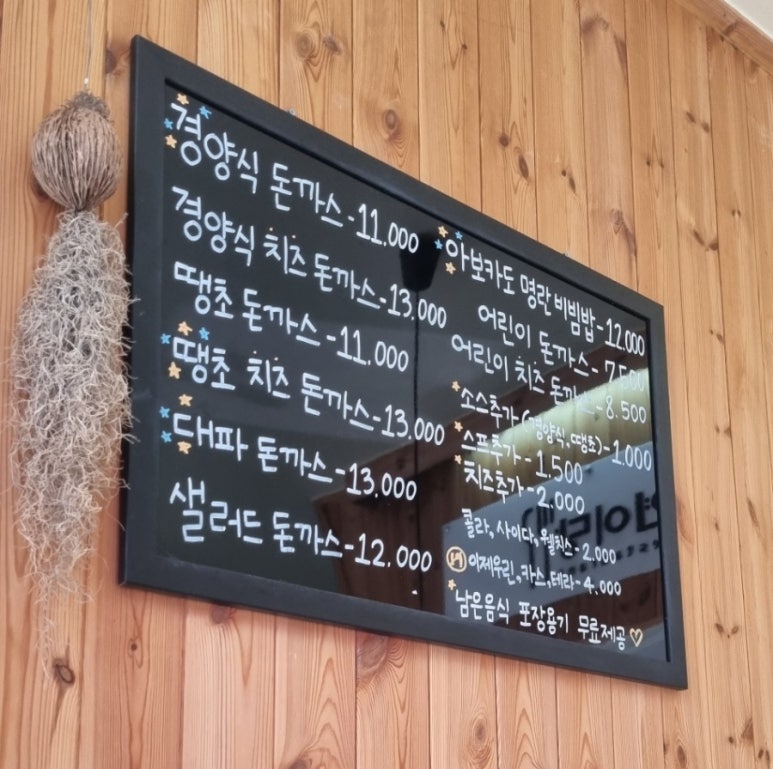 경양식 돈까스 - 11.000
경양식 치즈 돈까스 - 13.000
땡초 돈까스 - 11.000
땡초 치즈 돈까스 - 13.000
대파 돈까스 - 13.000
샐러드 돈까스 - 12.000
아보카도 명란 비빔밥 - 12.000
어린이 돈까스 - 7.500
어린이 치즈 돈까스 - 8.500
소스추가 (경양식, 땡초) - 1.000
스프추가 - 1.500
치즈추가 - 2.000
콜라, 사이다, 웰치스 - 2.000
이제우린, 카스, 테라 - 4.000
남은음식 포장용기 무료제공♡